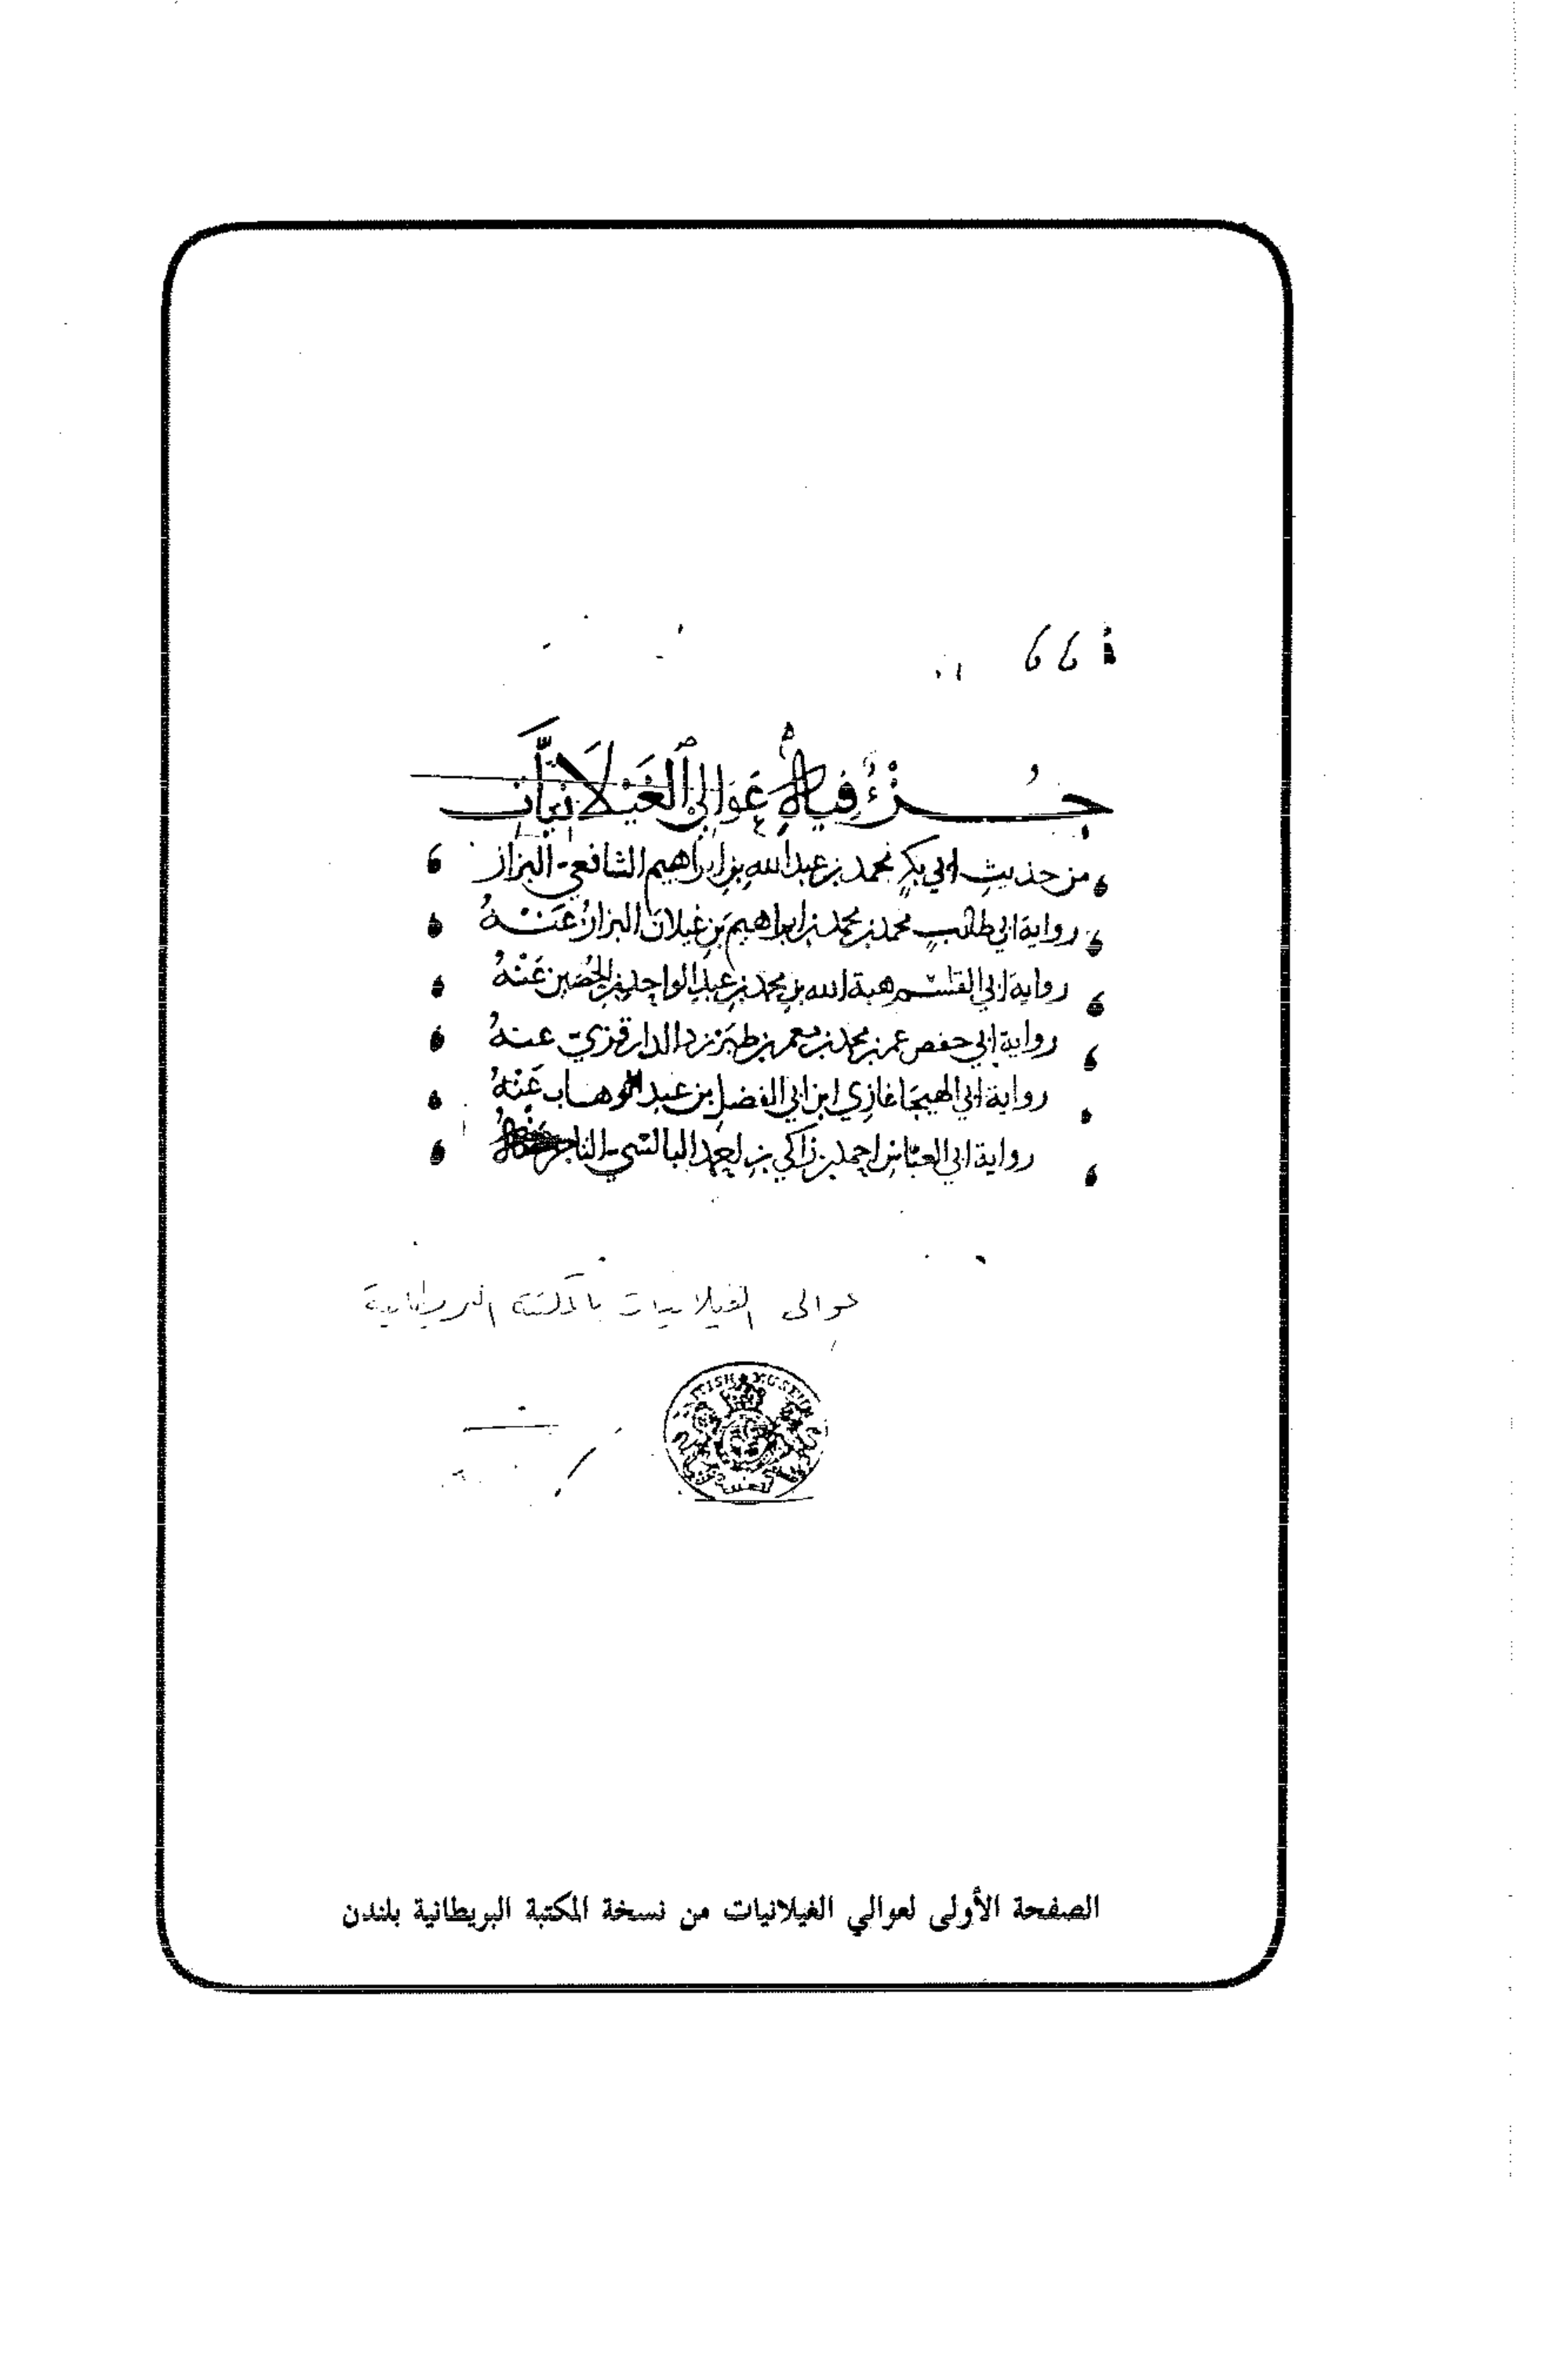 66
جُزْءٌ فِيهِ عَوَالِي الغَيْلَانيَّات
من حديث ابي بكر محمد بن عبد الله بن ابراهيم الشافعي البزاز
رواية ابي طالب محمد بن محمد بن ابراهيم بن غيلان البزاز عَنْهُ
رواية ابي القسم هبة الله بن محمد بن عبد الواحد بن الحُصَين عَنْهُ
رواية ابي حفص عمر بن محمد بن معمر بن طبرزد الدارقزي عنهُ
رواية ابي الهيجا غازي ابن ابي الفضل بن عبد الوهاب عَنْهُ
رواية ابي العباس احمد بن زاكي بن البالسي التاجر
عوالى الغيلانيات بالمكتبة البريطانية
BRITISH MUSEUM
الصفحة الأولى لعوالي الغيلانيات من نسخة المكتبة البريطانية بلندن